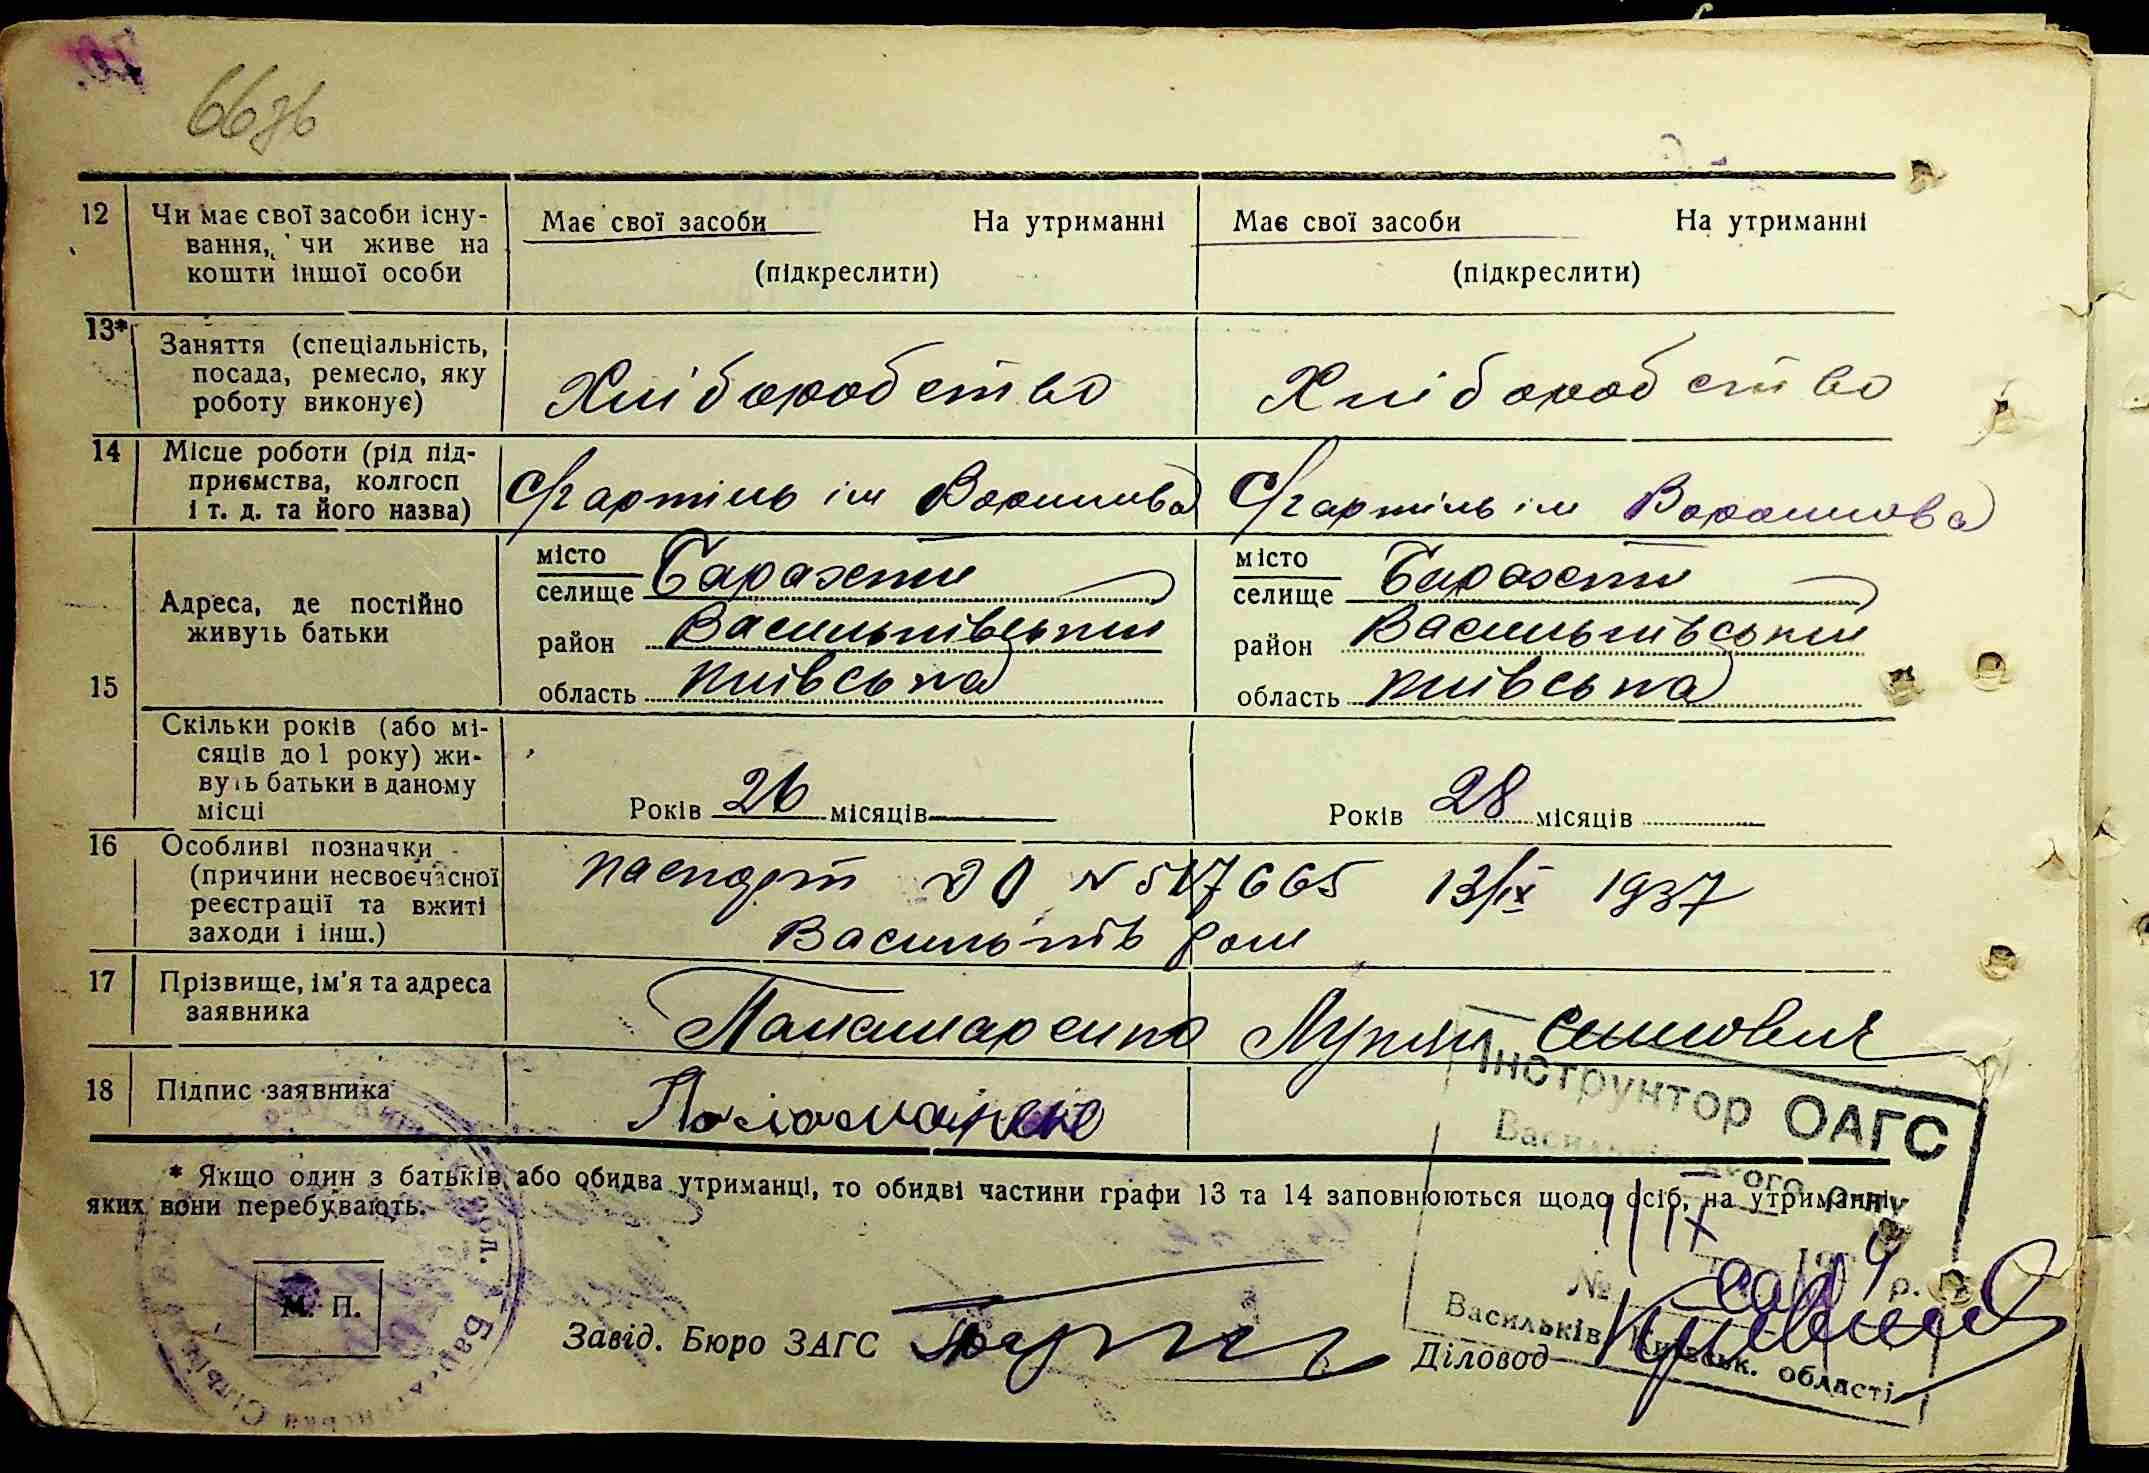 66зв
12 Чи має свої засоби існу-
вання, чи живе на
кошти іншої особи
Має свої засоби На утриманні
(підкреслити)
Має свої засоби На утриманні
(підкреслити)
13* Заняття (спеціальність,
посада, ремесло, яку
роботу виконує)
Хліборобство
Хліборобство
14 Місце роботи (рід під-
приємства, колгосп
і т. д. та його назва)
С/г артіль ім Ворошилова
С/г артіль ім Ворошилова
15 Адреса, де постійно
живуть батьки
місто
селище Барахти
район Васильківський
область Київська
місто
селище Барахти
район Васильківський
область Київська
Скільки років (або мі-
сяців до 1 року) жи-
вуть батьки в даному
місці
Років 26 місяців
Років 28 місяців
16 Особливі позначки
(причини несвоєчасної
реєстрації та вжиті
заходи і інш.)
паспорт № 517665 13/ІХ 1937
Васильків
17 Прізвище, ім'я та адреса
заявника
18 Підпис заявника
* Якщо один з батьків або обидва утриманці, то обидві частини графи 13 та 14 заповнюються щодо осіб, на утриманні
яких вони перебувають.
М. П.
Завід. Бюро ЗАГС
Діловод
Інструктор ОАГС
Васильківського
№
р.
Васильків Київськ. області